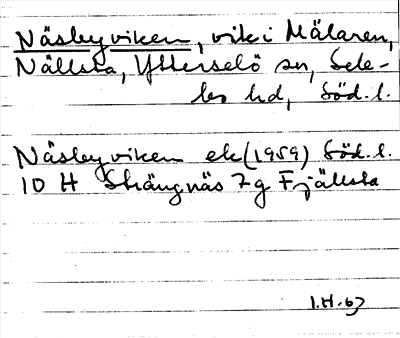 Näsbyviken, vik i Mälaren,
Nällsta, Ytterselö sn, Sele-
bo hd, Söd. l.
Näsbyviken ek (1959) Söd. l.
10 H Strängnäs 7g Fjällsta
1.H.63